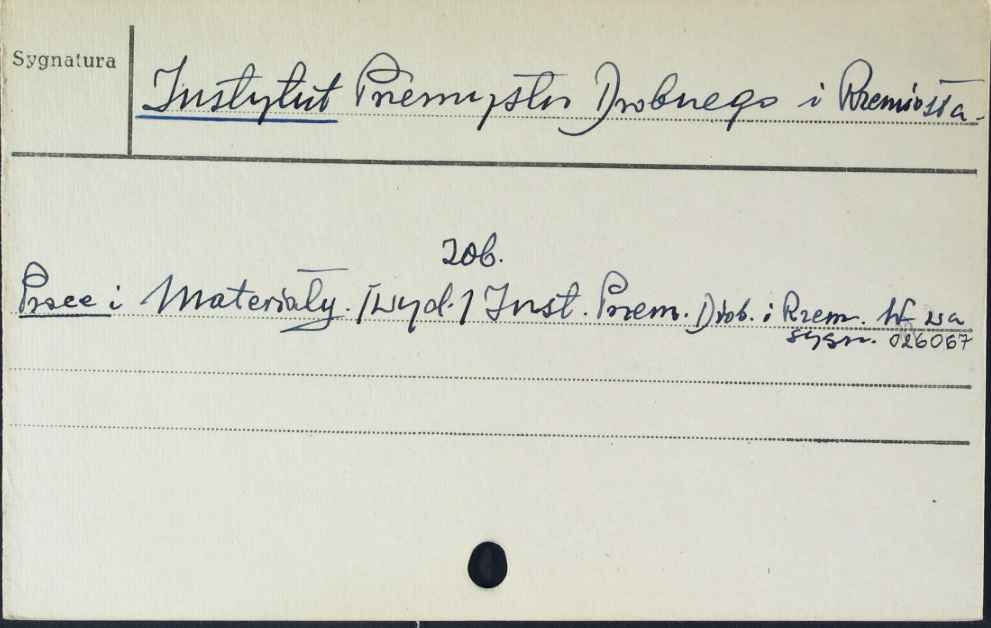 Sygnatura
Instytut Przemysłu Drobnego i Rzemiosła.
zob.
Prace i Materiały. [wyd.] Inst. Przem. Drob. i Rzem. W-wa
sygn. 026067